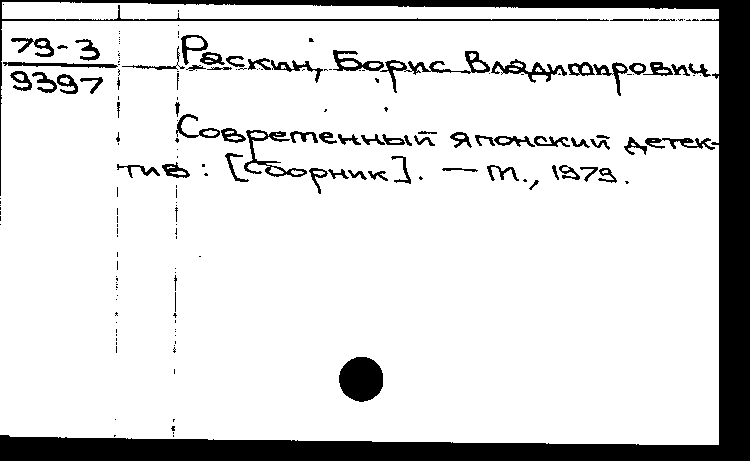 79-3
9397
Раскин, Борис Владимирович.
Современный японский детек-
тив: [Сборник]. — М., 1979.